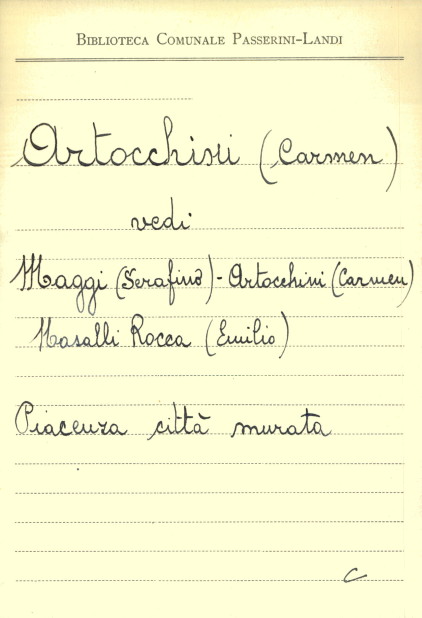 BIBLIOTECA COMUNALE PASSERINI-LANDI
Artocchini (Carmen)
vedi
Maggi (Serafino) - Artocchini (Carmen)
Nasalli Rocca (Emilio)
Piacenza città murata
C